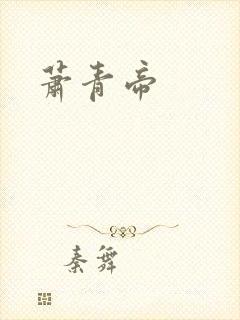 萧青帝
秦舞